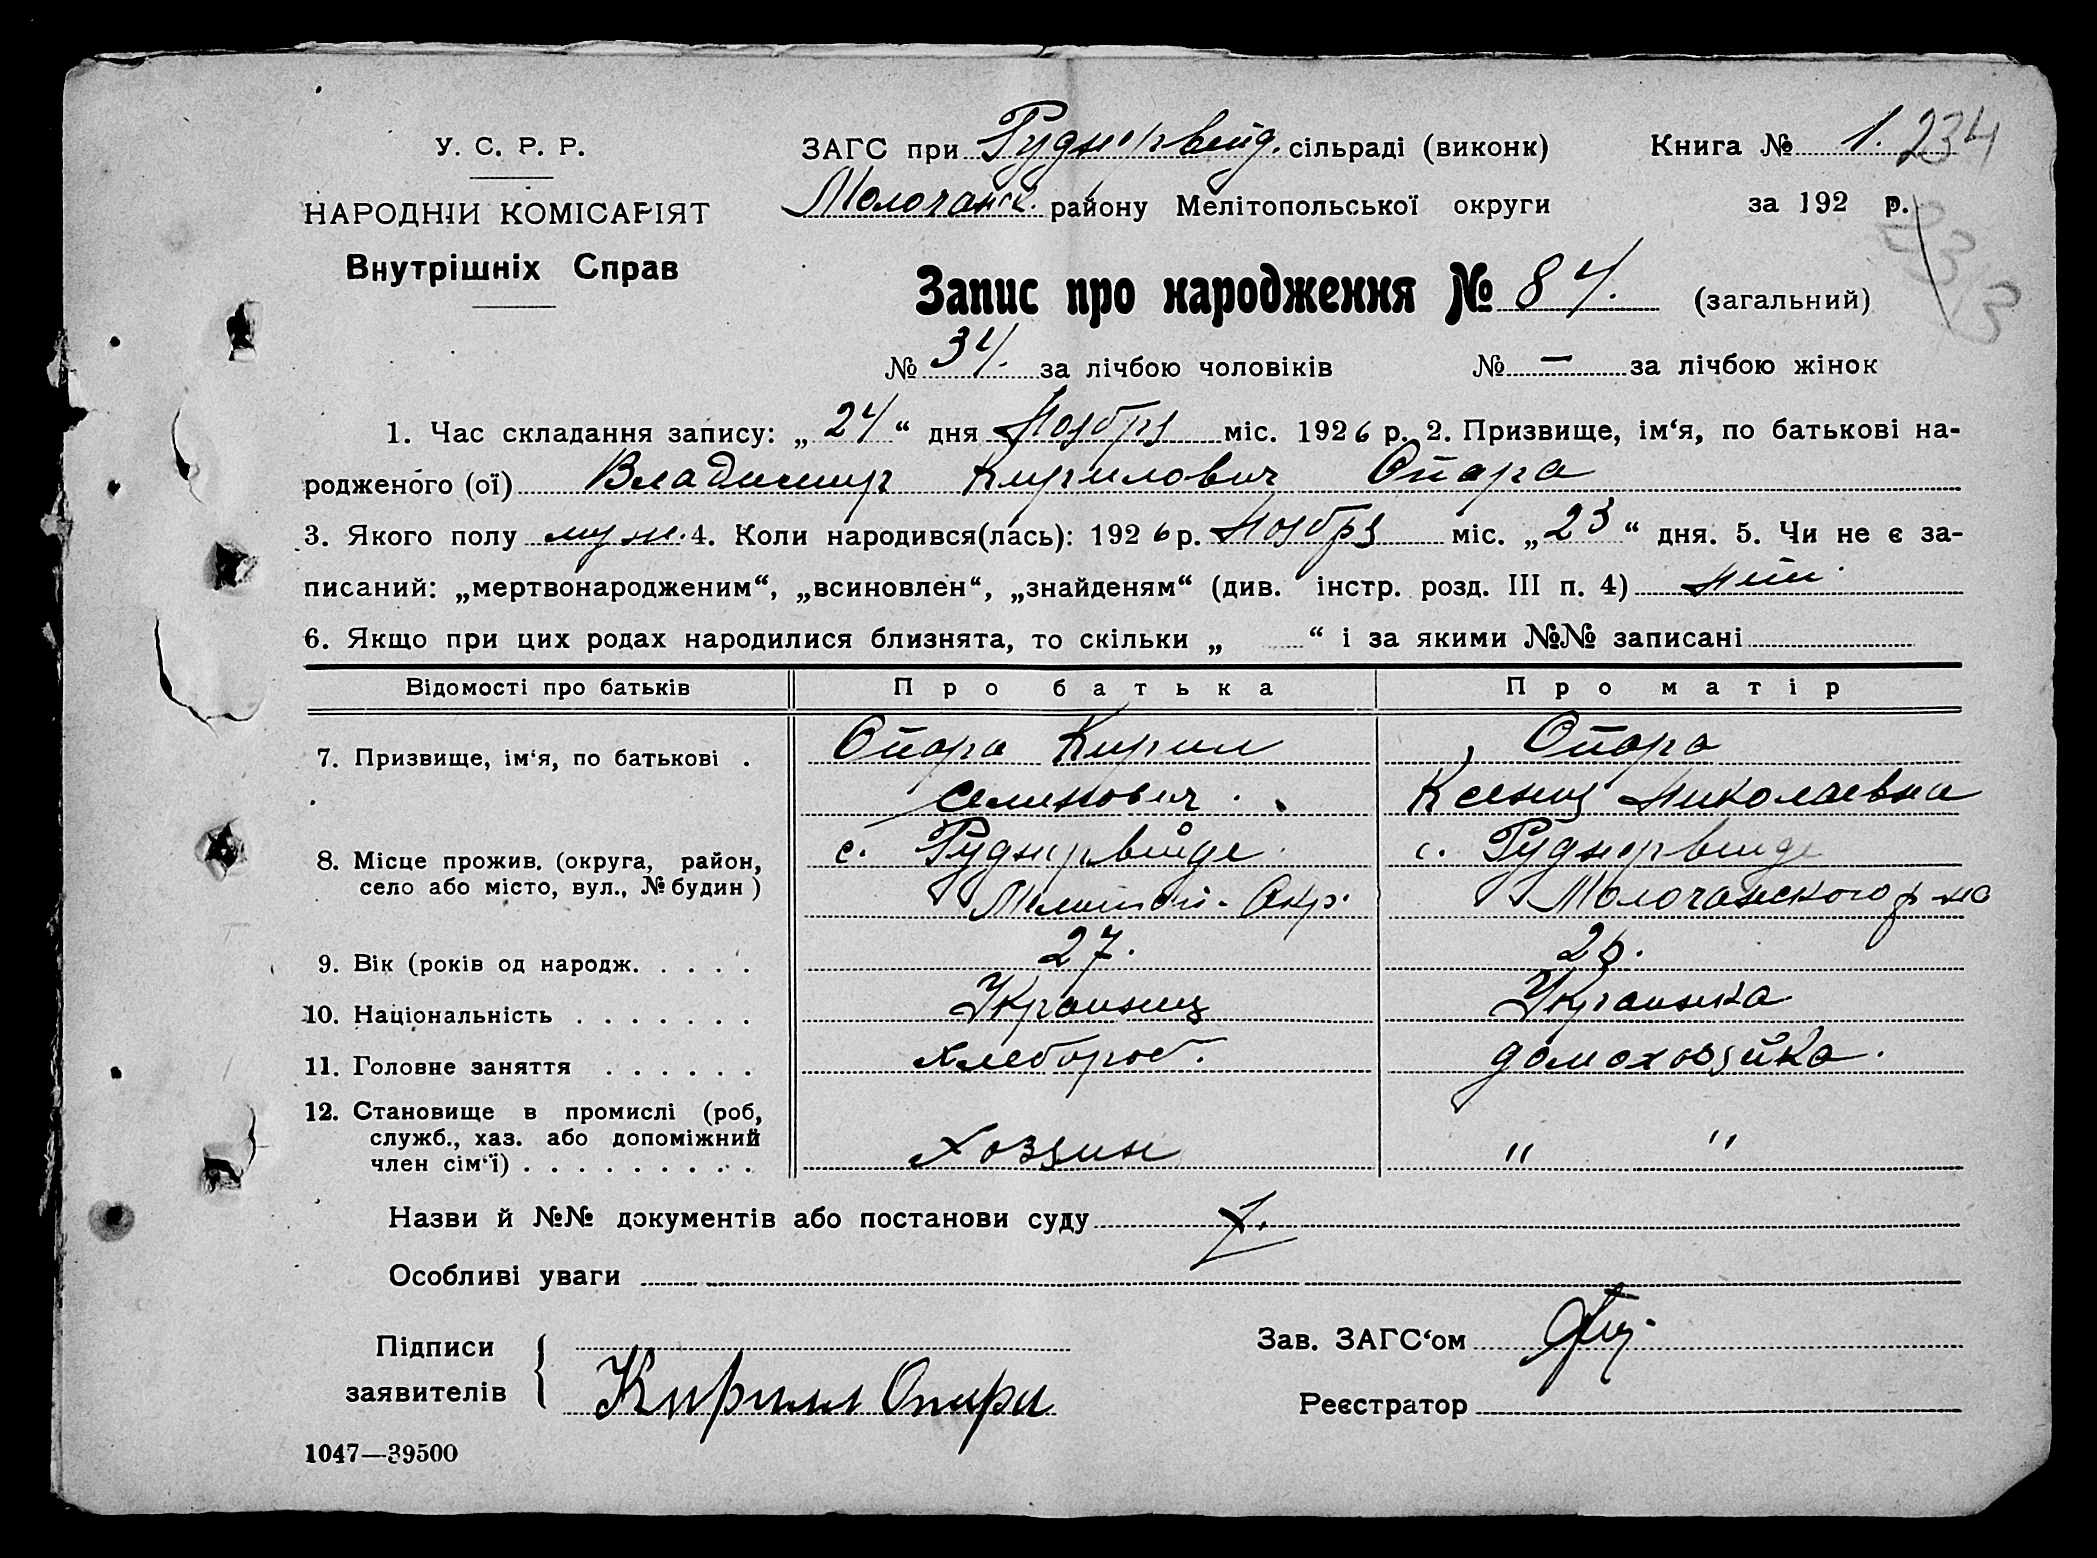 У. С. Р. Р.
НАРОДНІЙ КОМІСАРІЯТ
Внутрішніх Справ
ЗАГС при Руднервейд. сільраді (виконк)
Молочанск. району Мелітопольської округи
Книга № 1. 234
за 192 р.
Запис про народження № 84. (загальний)
№ 34. за лічбою чоловіків № — за лічбою жінок
1. Час складання запису: „ 24 “ дня Ноября міс. 1926 р. 2. Призвище, ім‘я, по батькові на-
родженого (ої) Владимир Кирилович Опара
3. Якого полу муж. 4. Коли народився(лась): 1926 р. Ноября міс. „ 23 “ дня. 5. Чи не є за-
писаний: „мертвонародженим“, „всиновлен“, „знайденям“ (див. інстр. розд. III п. 4) нет
6. Якщо при цих родах народилися близнята, то скільки „ “ і за якими №№ записані
Відомості про батьків Про батька Про матір
7. Призвище, ім‘я, по батькові . Опара Кирил Опара
Семенович. Ксения Николаевна
8. Місце прожив. (округа, район, с. Руднервейде с. Руднервейде
село або місто, вул., № будин ) Мелитоп. Окр. Молочанского р-на
9. Вік (років од народж. . . . . 27. 26.
10. Національність . . . . . . . Украинец Украинка
11. Головне заняття . . . . . . Хлебороб. домохозяйка.
12. Становище в промислі (роб,
служб., хаз. або допоміжний
член сім‘ї) . . . . . . . . . . Хозяин " "
Назви й №№ документів або постанови суду
Особливі уваги
Підписи
заявителів Кирилл Опара
Зав. ЗАГС‘ом
Реєстратор
1047—39500